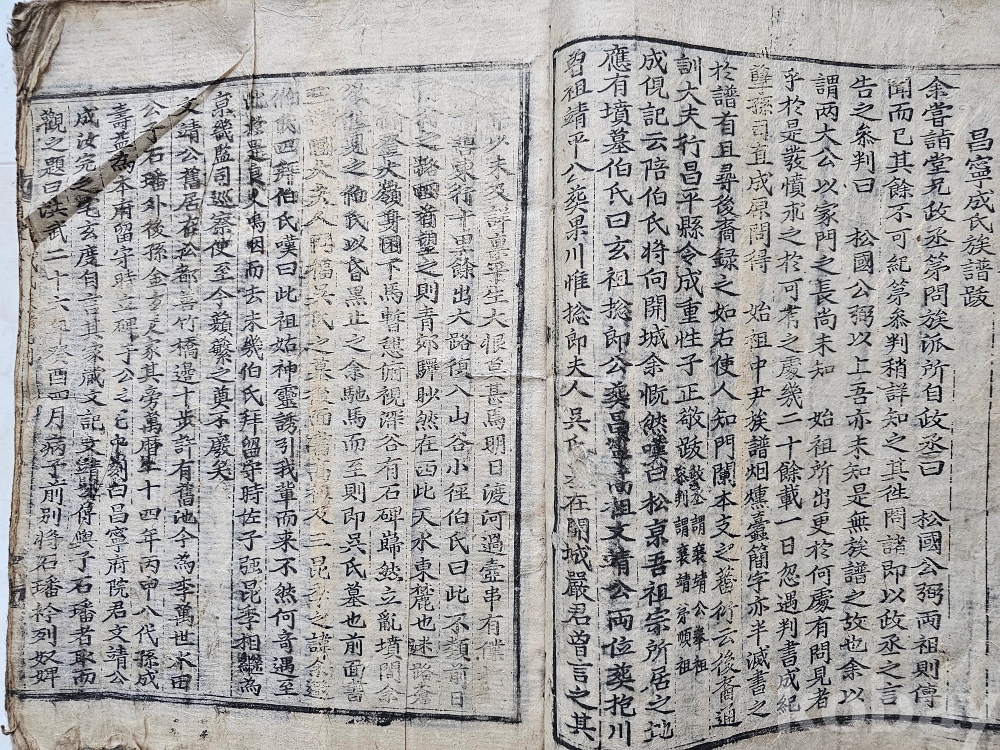 昌寧成氏族譜跋
余嘗請堂兄政丞第問族派所自政丞曰 松國公弼兩祖則停
聞而已其餘不可紀第叅判稍詳知之其徃問諸即以政丞之言
告之叅判曰 松國公弼以上吾亦未知是無族譜之故也余以
謂两大公以家門之長尚未知 始祖所出更於何處有問見者
乎於是發憤求之於可考之處幾二十餘載一日忽遇判書成紀
孽孫司直成原閒得 始祖中尹族譜烟燻蠹簡字亦半滅書之
於譜首且尋後裔録之如右使人知門闌本支之蕃衍云後裔通
訓大夫行昌平縣令成重性子正敬跋
叅判謂襄靖
成俔記云陪伯氏將向開城余慨然嘆曰松京吾祖宗所居之地
應有墳墓伯氏曰玄祖捴郎公葬昌寧高祖文靖公兩位葬抱川
曽祖靖平公葬果川惟捴郎夫人吳氏墓在開城嚴君曽言之其
以未及詳禀平生大恨思甚焉明日渡河過壺串有僕
道東行十里餘出大路復入山谷小徑伯氏曰此不類前日
之路回首望之則青郊驛眇然在西此天水東麓也迷路
登大嶺身困下馬暫憇俯視深谷有石碑巋然立亂墳間余
見之伯氏以昏黑止之余馳馬而至則即吳氏墓也前面書
國大夫人 吳氏之墓後面書 及三昆季之諱余
伯氏四拜伯氏嘆曰此祖姑神靈誘引我輩而来不然何奇遇至
此 是良久嗚咽而去未幾伯氏拜留守時佐子強昆季相繼為
京畿監司巡察使至今蘋蘩之奠不廢矣
文靖公舊居在松都善竹橋邊十步許有舊池今為李萬世水田
公子石璠外後孫金 家其旁萬曆二十四年丙申八代孫成
壽益為本府留守時立碑于公之宅中刻曰昌寧府院君文靖公
成汝完之宅玄度自言其家蔵文記文靖 傳與子石璠者取而
觀之題曰洪武二十六年癸酉四月病子前别将石璠衿列奴婢